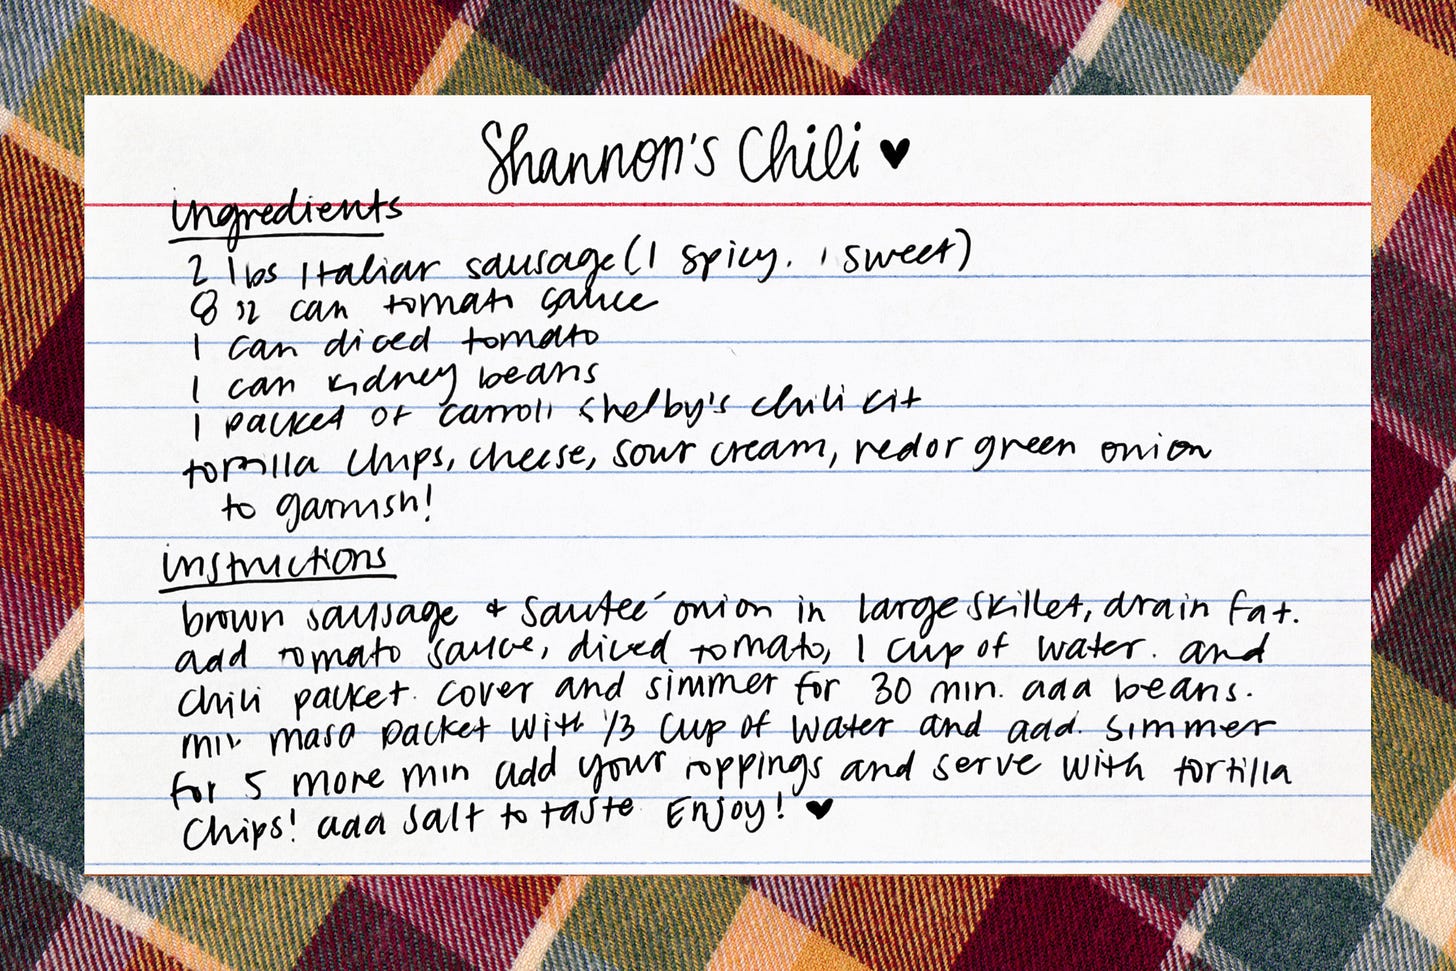 Shannon's Chili ♥
ingredients
2 lbs Italian sausage (1 spicy. 1 sweet)
8 oz can tomato sauce
1 can diced tomato
1 can kidney beans
1 packet of carroll shelby's chili kit
tortilla chips, cheese, sour cream, red or green onion
to garnish!
instructions
brown sausage + sauteé onion in large skillet, drain fat.
add tomato sauce, diced tomato, 1 cup of water. and
chili packet. cover and simmer for 30 min. add beans.
mix masa packet with 1/3 cup of water and add. simmer
for 5 more min add your toppings and serve with tortilla
chips! add salt to taste Enjoy! ♥